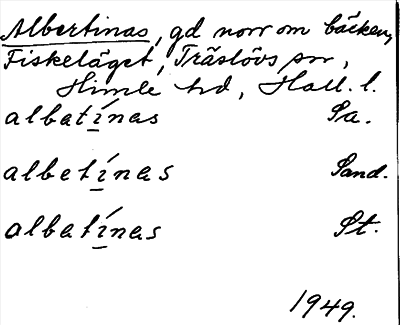 Albertinas, gd norr om bäcken,
Fiskeläget, Träslövs sn,
Himle hd, Hall. l.
albatí̱nas Sa.
albetí̱nas Sand.
albatí̱nas St.
1949.